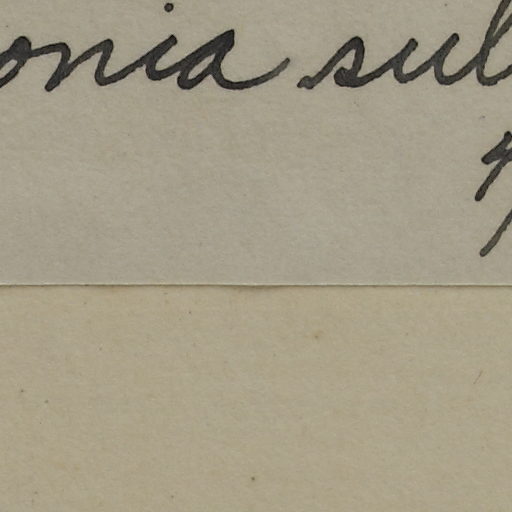 onia sul